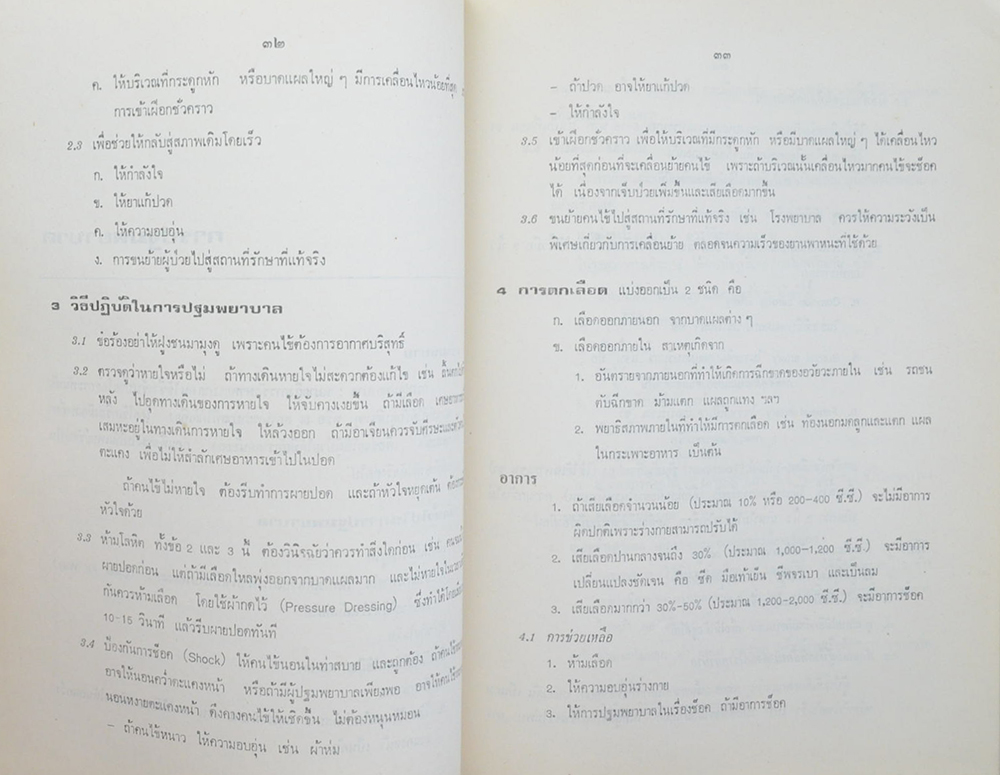 ๓๒
ค. ให้บริเวณที่กระดูกหัก หรือบาดแผลใหญ่ ๆ มีการเคลื่อนไหวน้อยที่สุด
การเข้าเฝือกชั่วคราว
2.3 เพื่อช่วยให้กลับสู่สภาพเดิมโดยเร็ว
ก. ให้กำลังใจ
ข. ให้ยาแก้ปวด
ค. ให้ความอบอุ่น
ง. การขนย้ายผู้ป่วยไปสู่สถานที่รักษาที่แท้จริง
3 วิธีปฏิบัติในการปฐมพยาบาล
3.1 ขอร้องอย่าให้ฝูงชนมามุงดู เพราะคนไข้ต้องการอากาศบริสุทธิ์
3.2 ตรวจดูว่าหายใจหรือไม่ ถ้าทางเดินหายใจไม่สะดวกต้องแก้ไข เช่น
หลัง ไปอุดทางเดินของการหายใจ ให้จับคางเงยขึ้น ถ้ามีเลือด
เสมหะอยู่ในทางเดินการหายใจ ให้ล้วงออก ถ้ามีอาเจียนควรจับศีรษะ
ตะแคง เพื่อไม่ให้สำลักเศษอาหารเข้าไปในปอด
ถ้าคนไข้ไม่หายใจ ต้องรีบทำการผายปอด และถ้าหัวใจหยุดเต้น
หัวใจด้วย
3.3 ห้ามโลหิต ทั้งข้อ 2 และ 3 นี้ ต้องวินิจฉัยว่าควรทำสิ่งใดก่อน เช่น
ผายปอดก่อน แต่ถ้ามีเลือดไหลพุ่งออกจากบาดแผลมาก และไม่หายใจ
กันควรห้ามเลือด โดยใช้ผ้ากดไว้ (Pressure Dressing) ซึ่งทำได้
10-15 วินาที แล้วรีบผายปอดทันที
3.4 ป้องกันการช็อค (Shock) ให้คนไข้นอนในท่าสบาย และถูกต้อง
อาจให้นอนคว่ำตะแคงหน้า หรือถ้ามีผู้ปฐมพยาบาลเพียงพอ
นอนหงายตะแคงหน้า ดึงคางคนไข้ให้เชิดขึ้น ไม่ต้องหนุนหมอน
- ถ้าคนไข้หนาว ให้ความอบอุ่น เช่น ผ้าห่ม
๓๓
- ถ้าปวด อาจให้ยาแก้ปวด
- ให้กำลังใจ
3.5 เข้าเฝือกชั่วคราว เพื่อให้บริเวณที่มีกระดูกหัก หรือมีบาดแผลใหญ่ ๆ ได้เคลื่อนไหว
น้อยที่สุดก่อนที่จะเคลื่อนย้ายคนไข้ เพราะถ้าบริเวณนั้นเคลื่อนไหวมากคนไข้จะช็อค
ได้ เนื่องจากเจ็บป่วยเพิ่มขึ้นและเสียเลือดมากขึ้น
3.6 ขนย้ายคนไข้ไปสู่สถานที่รักษาที่แท้จริง เช่น โรงพยาบาล ควรให้ความระวังเป็น
พิเศษเกี่ยวกับการเคลื่อนย้าย ตลอดจนความเร็วของยานพาหนะที่ใช้ด้วย
4 การตกเลือด แบ่งออกเป็น 2 ชนิด คือ
ก. เลือดออกภายนอก จากบาดแผลต่าง ๆ
ข. เลือดออกภายใน สาเหตุเกิดจาก
1. อันตรายจากภายนอกที่ทำให้เกิดการฉีกขาดของอวัยวะภายใน เช่น รถชน
ตับฉีกขาด ม้ามแตก แผลถูกแทง ฯลฯ
2. พยาธิสภาพภายในที่ทำให้มีการตกเลือด เช่น ท้องนอกมดลูกและแตก แผล
ในกระเพาะอาหาร เป็นต้น
อาการ
1. ถ้าเสียเลือดจำนวนน้อย (ประมาณ 10% หรือ 200-400 ซี.ซี.) จะไม่มีอาการ
ผิดปกติเพราะร่างกายสามารถปรับได้
2. เสียเลือดปานกลางจนถึง 30% (ประมาณ 1,000-1,200 ซี.ซี.) จะมีอาการ
เปลี่ยนแปลงชัดเจน คือ ซีด มือเท้าเย็น ชีพจรเบา และเป็นลม
3. เสียเลือดมากกว่า 30%-50% (ประมาณ 1,200-2,000 ซี.ซี.) จะมีอาการช็อค
4.1 การช่วยเหลือ
1. ห้ามเลือด
2. ให้ความอบอุ่นร่างกาย
3. ให้การปฐมพยาบาลในเรื่องช็อค ถ้ามีอาการช็อค